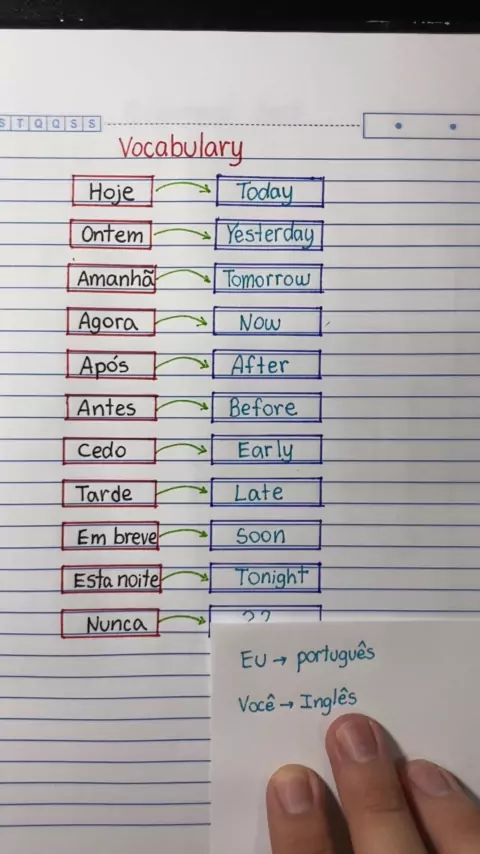 S T Q Q S S
Vocabulary
Hoje Today
Ontem Yesterday
Amanhã Tomorrow
Agora Now
Após After
Antes Before
Cedo Early
Tarde Late
Em breve Soon
Esta noite Tonight
Nunca ??
Eu → português
Você → Inglês